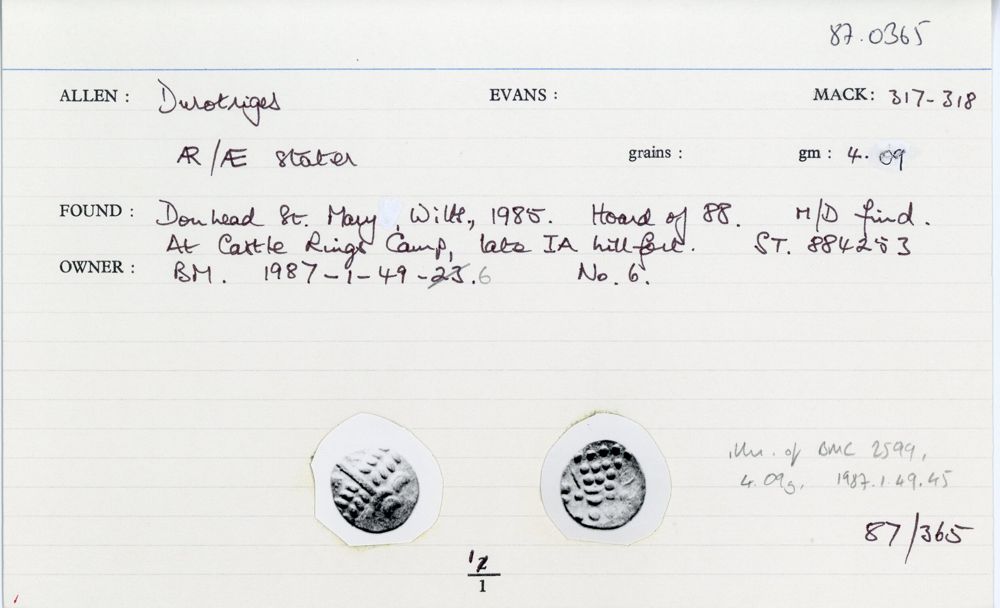 87.0365
ALLEN : Durotriges EVANS : MACK: 317-318
ÆR/Æ Stater grains : gm : 4.09
FOUND : Donhead St. Mary, Wilts., 1985. Hoard of 88. M/D find.
At Castle Rings Camp, late IA hillfort. ST. 884253
OWNER : BM. 1987-1-49-23.6 No. 6.
illu. of BMC 2599,
4.09g. 1987.1.49.45
87/365
1
1